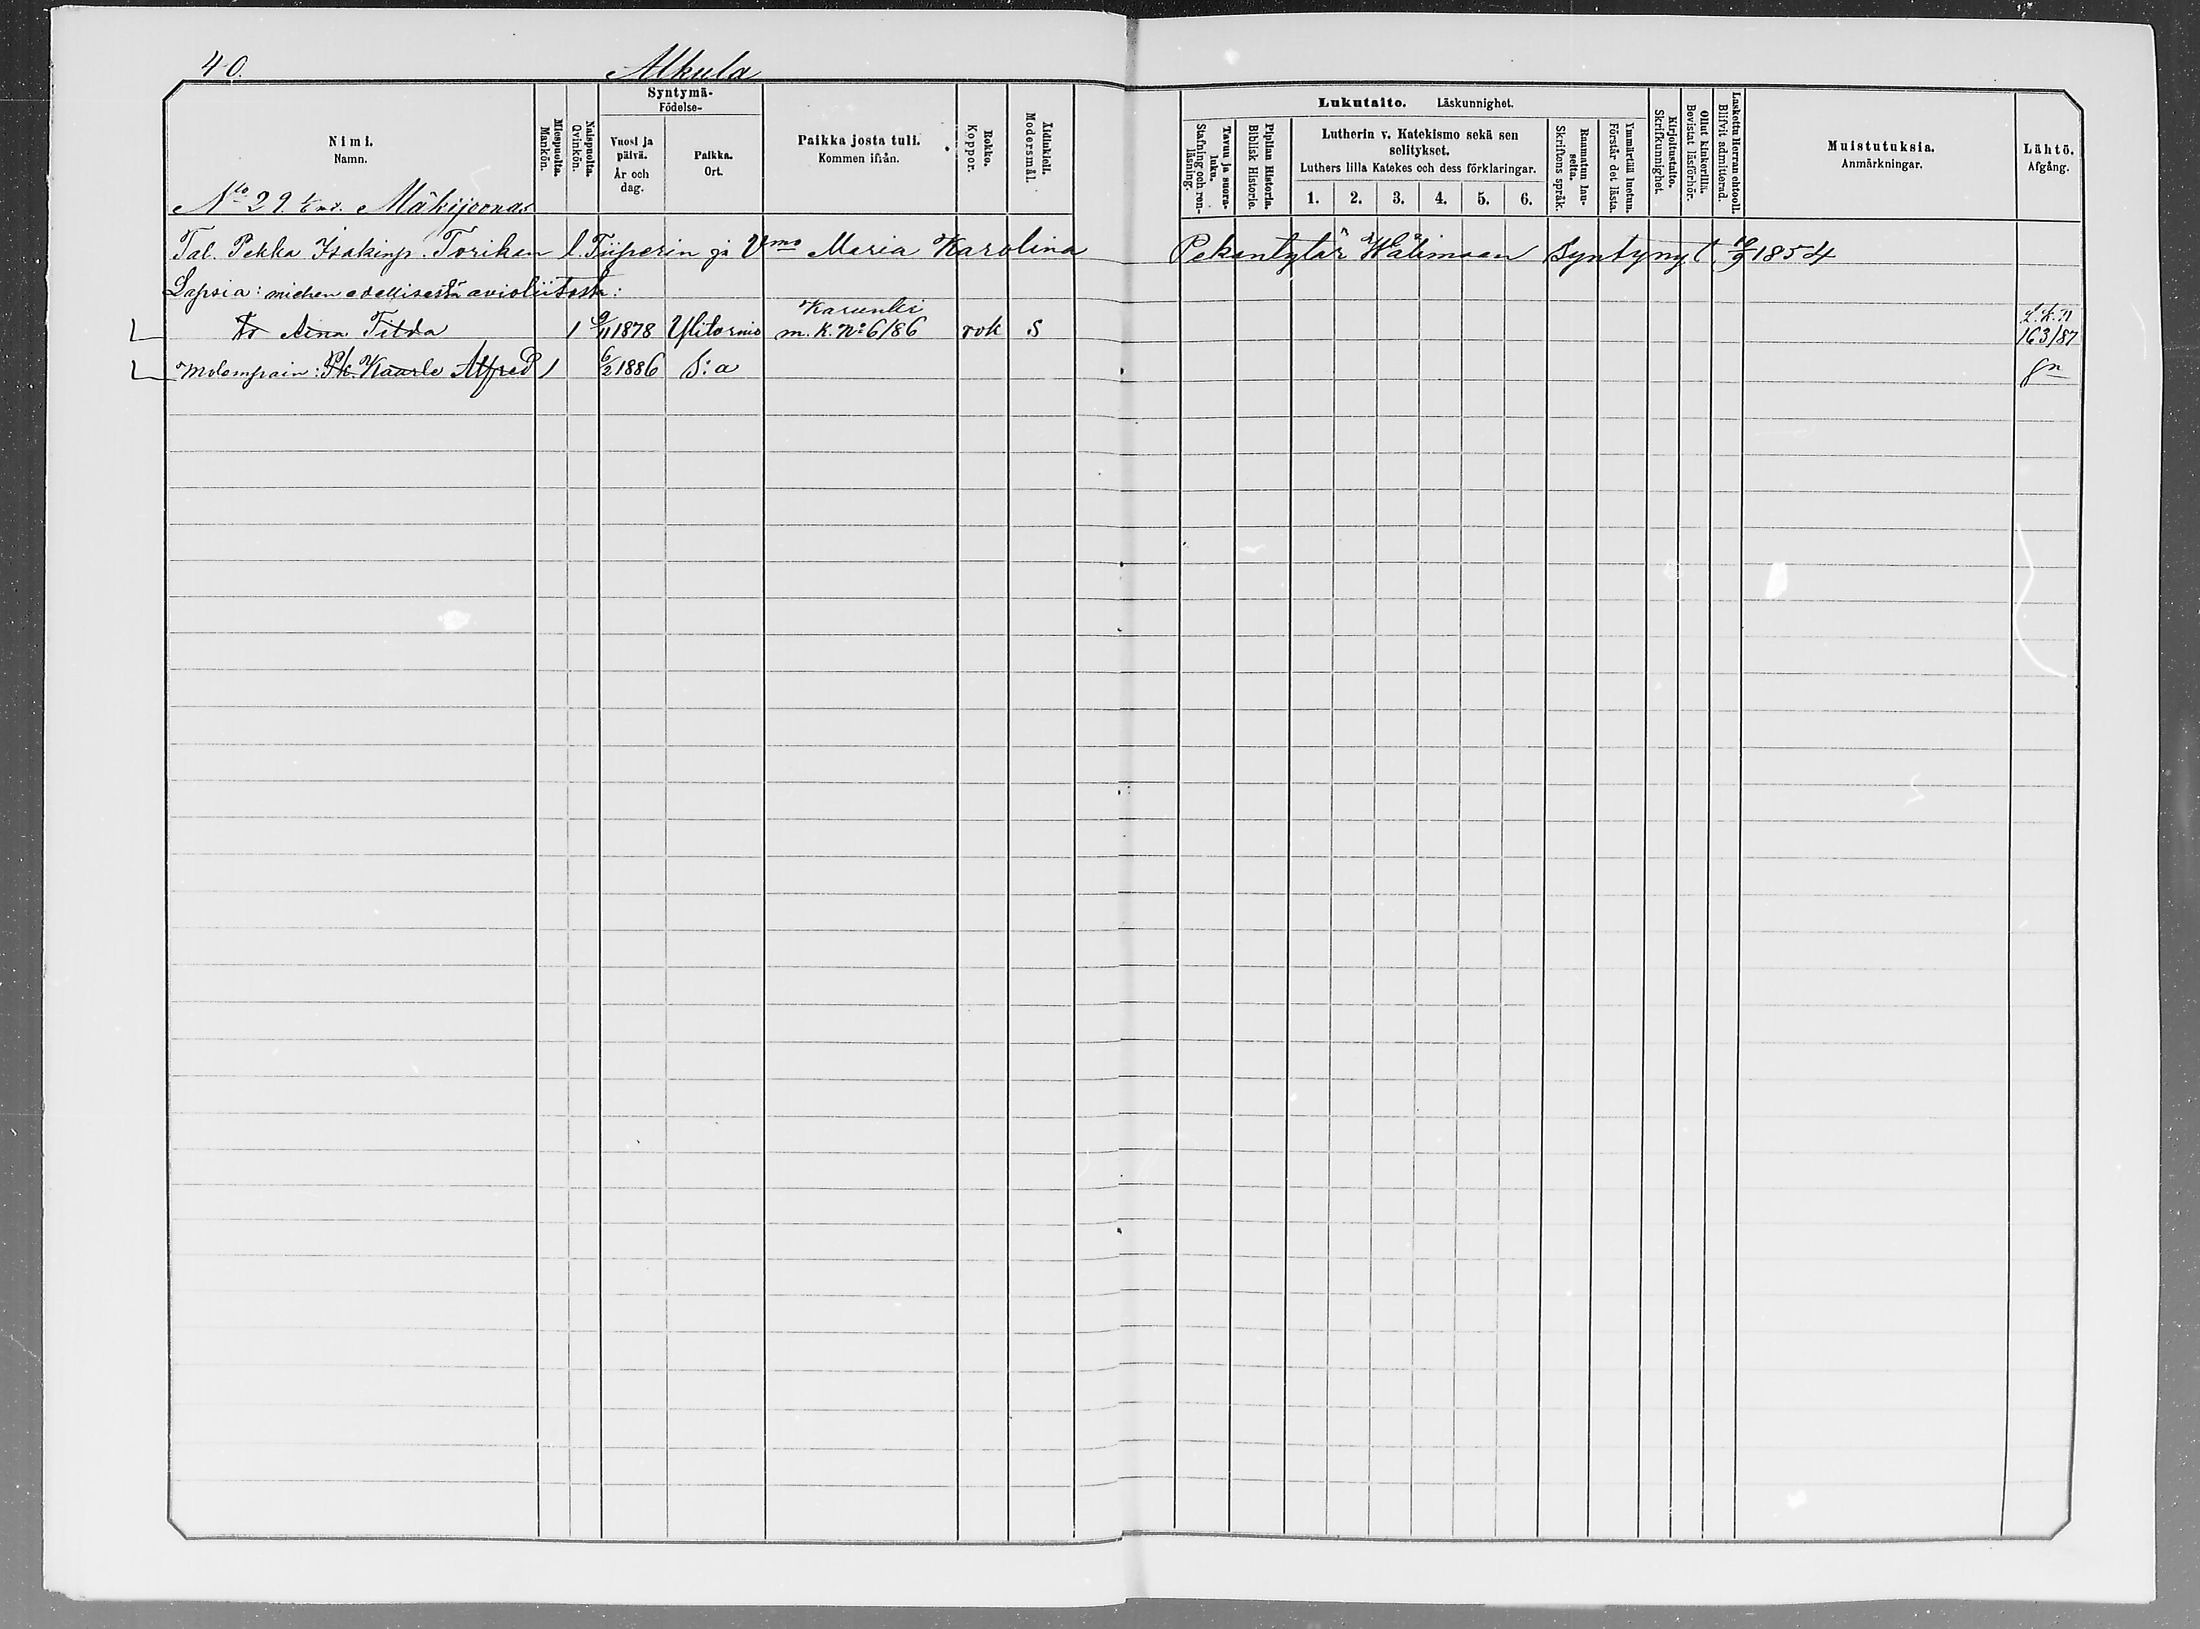 40.
Alkula
Nimi.
Namn.
Miespuolta.
Mankön.
Naispuolta.
Qvinkön.
Syntymä-
Födelse-
Vuosi ja päivä.
År och dag.
Paikka.
Ort.
Paikka josta tuli.
Kommen ifrån.
Rokko.
Koppor.
Äidinkieli.
Modersmål.
Lukutaito. Läskunnighet.
Tavuu ja suora-luku.
Stafning och ren-läsning.
Piplian Historia.
Biblisk Historie.
Lutherin v. Katekismo sekä sen
selitykset.
Luthers lilla Katekes och dess förklaringar.
1. 2. 3. 4. 5. 6.
Raamatun lau-seita.
Skriftens språk.
Ymmärtää luetun.
Förstår det lästa.
Kirjoitustaito.
Skrifkunnighet.
Ollut kinkerillä.
Bevistat läsförhör.
Laskettu Herran ehtooll.
Blifvit admitterad.
Muistutuksia.
Anmärkningar.
Lähtö.
Afgång.
N:to 29. Mäkijoonas
Tal. Pekka Isakinp. Torikan l. Tiiperin ja Vmo Maria Karolina Pekantytär Wälimaan Syntynyt 10/9 1854
Lapsia: miehen edellisestä avioliitosta:
Tr Aina Tilda 1 9/11 1878 Ylitornio Karunki m. k. No 6/86 rok S L.k.N 163/87
Molempain: Pk Kaarle Alfred 1 6/2 1886 S:a